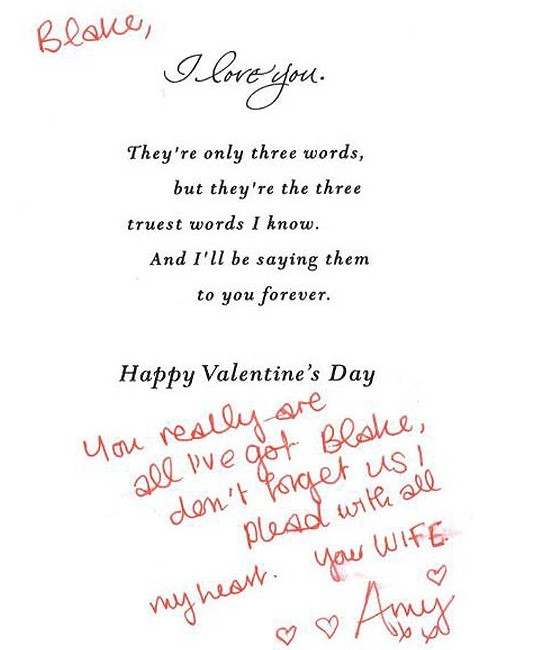 Blake,
I love you.
They're only three words,
but they're the three
truest words I know.
And I'll be saying them
to you forever.
Happy Valentine's Day
You really are
all I've got Blake,
don't forget us!
plead with all
my heart. your WIFE
Amy
xx